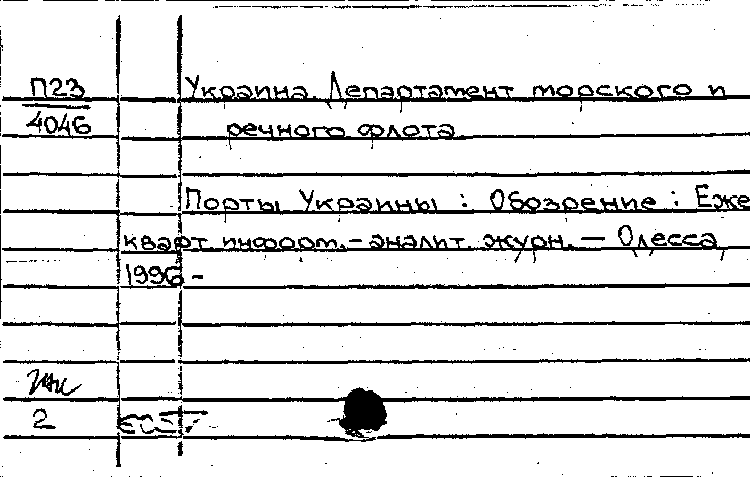 П23
4046
Украина. Департамент морского и
речного флота
Порты Украины : Обозрение : Еже
кварт. информ.-аналит. журн. — Одесса,
1996 -
2